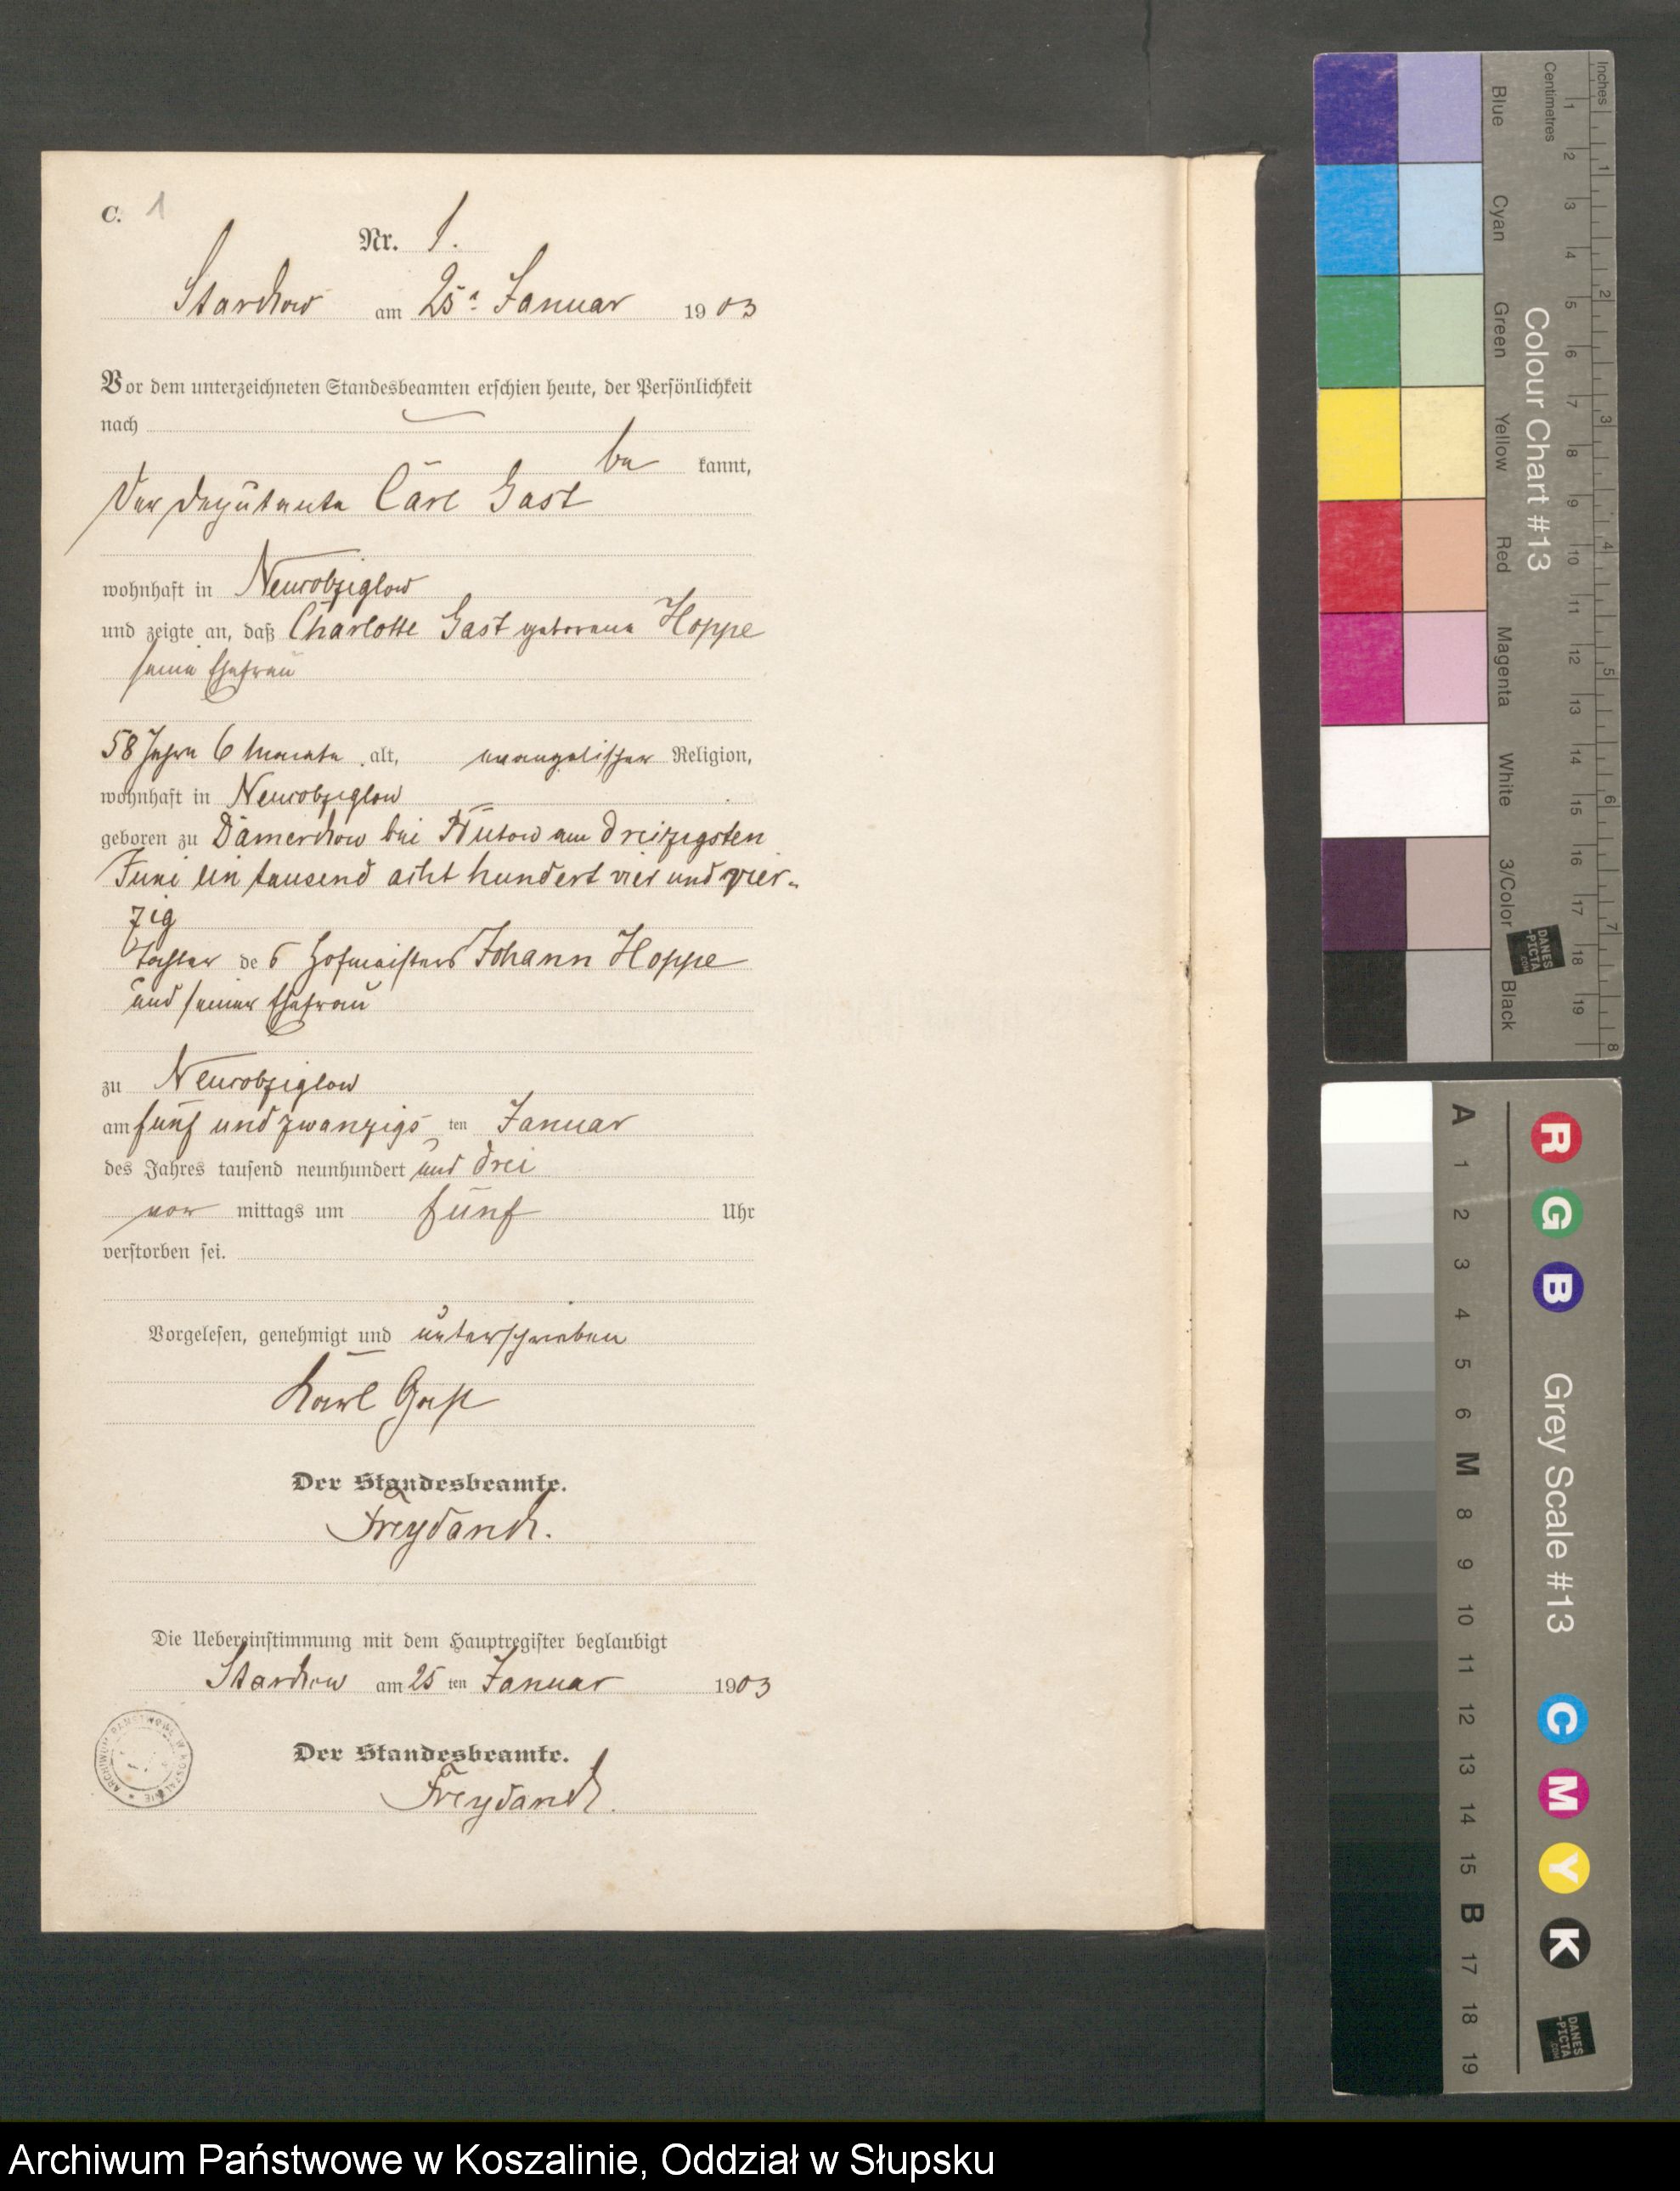 C. 1
Nr. 1.
Starchow am 25t Januar 1903
Vor dem unterzeichneten Standesbeamten erschien heute, der Persönlichkeit
nach
be kannt,
Der Deputante Carl Gast
wohnhaft in Neuwobziglow
und zeigte an, daß Charlotte Gast geborene Hoppe
seine Ehefrau
58 Jahre 6 Monate alt, evangelischer Religion,
wohnhaft in Neuwobziglow
geboren zu Damerchow bei am dreizigsten
Juni ein tausend acht hundert vier und vier-
zig
Tochter des Hofmeisters Johann Hoppe
und seiner Ehefrau
zu Neuwobziglow
am fünf und zwanzigsten Januar
des Jahres tausend neunhundert und drei
vor mittags um fünf Uhr
verstorben sei.
Vorgelesen, genehmigt und unterschrieben
Karl Gast
Der Standesbeamte.
Freydanck.
Die Uebereinstimmung mit dem Hauptregister beglaubigt
Starchow am 25 ten Januar 1903
Der Standesbeamte.
Freydanck.
ARCHIWUM PAŃSTWOWE W KOSZALINIE
Inches
Centimetres
1 2 3 4 5 6 7 8 9 10 11 12 13 14 15 16 17 18 19
1 2 3 4 5 6 7 8
Colour Chart #13
Blue
Cyan
Green
Yellow
Red
Magenta
White
3/Color
Black
DANES
-PICTA
.COM
A 1 2 3 4 5 6 M 8 9 10 11 12 13 14 15 B 17 18 19
R G B
Grey Scale #13
C M Y K
DANES
-PICTA
.COM
Archiwum Państwowe w Koszalinie, Oddział w Słupsku